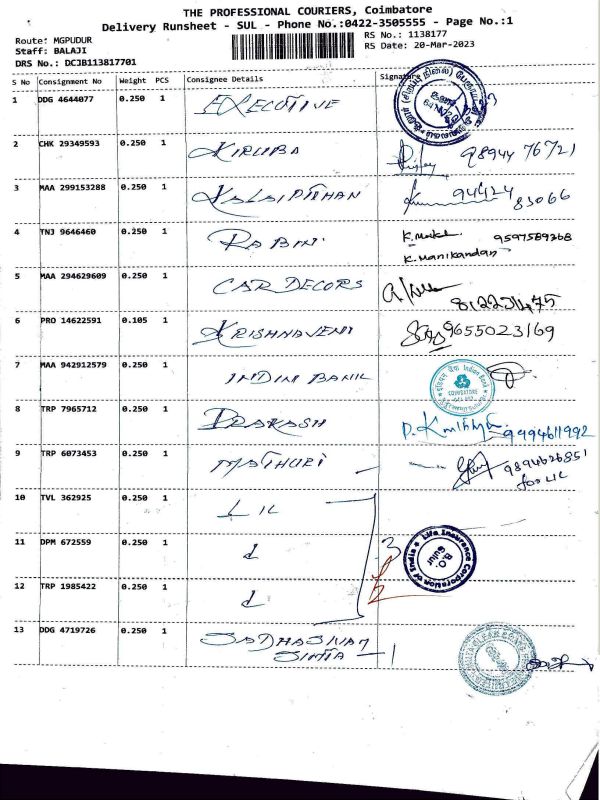 THE PROFESSIONAL COURIERS, Coimbatore
Delivery Runsheet - SUL - Phone No.:0422-3505555 - Page No.:1
Route: MGPUDUR
RS No.: 1138177
Staff: BALAJI
RS Date: 20-Mar-2023
DRS No.: DCJB113817701
S No Consignment No Weight PCS Consignee Details Signature
1 DDG 4644077 0.250 1 EXECUTIVE
2 CHK 29349593 0.250 1 KIRUBA 98944 76721
3 MAA 299153288 0.250 1 KALAIPITHAN 94424 83066
4 TNJ 9646460 0.250 1 RABINI 9597589268
K. Manikandan
5 MAA 294629609 0.250 1 CAR DECORS
6 PRO 14622591 0.105 1 KRISHNAVENI 9655023169
7 MAA 942912579 0.250 1 INDIN BANK
Indian Bank
COIMBATORE
8 TRP 7965712 0.250 1 PRAKASH 9994611992
9 TRP 6073453 0.250 1 MATHURI 9894626851
for LIC
10 TVL 362925 0.250 1 LIC
11 DPM 672559 0.250 1 d 3
Life Insurance Corporation of India
B.O.
12 TRP 1985422 0.250 1 d
13 DDG 4719726 0.250 1 SADHASIVAM